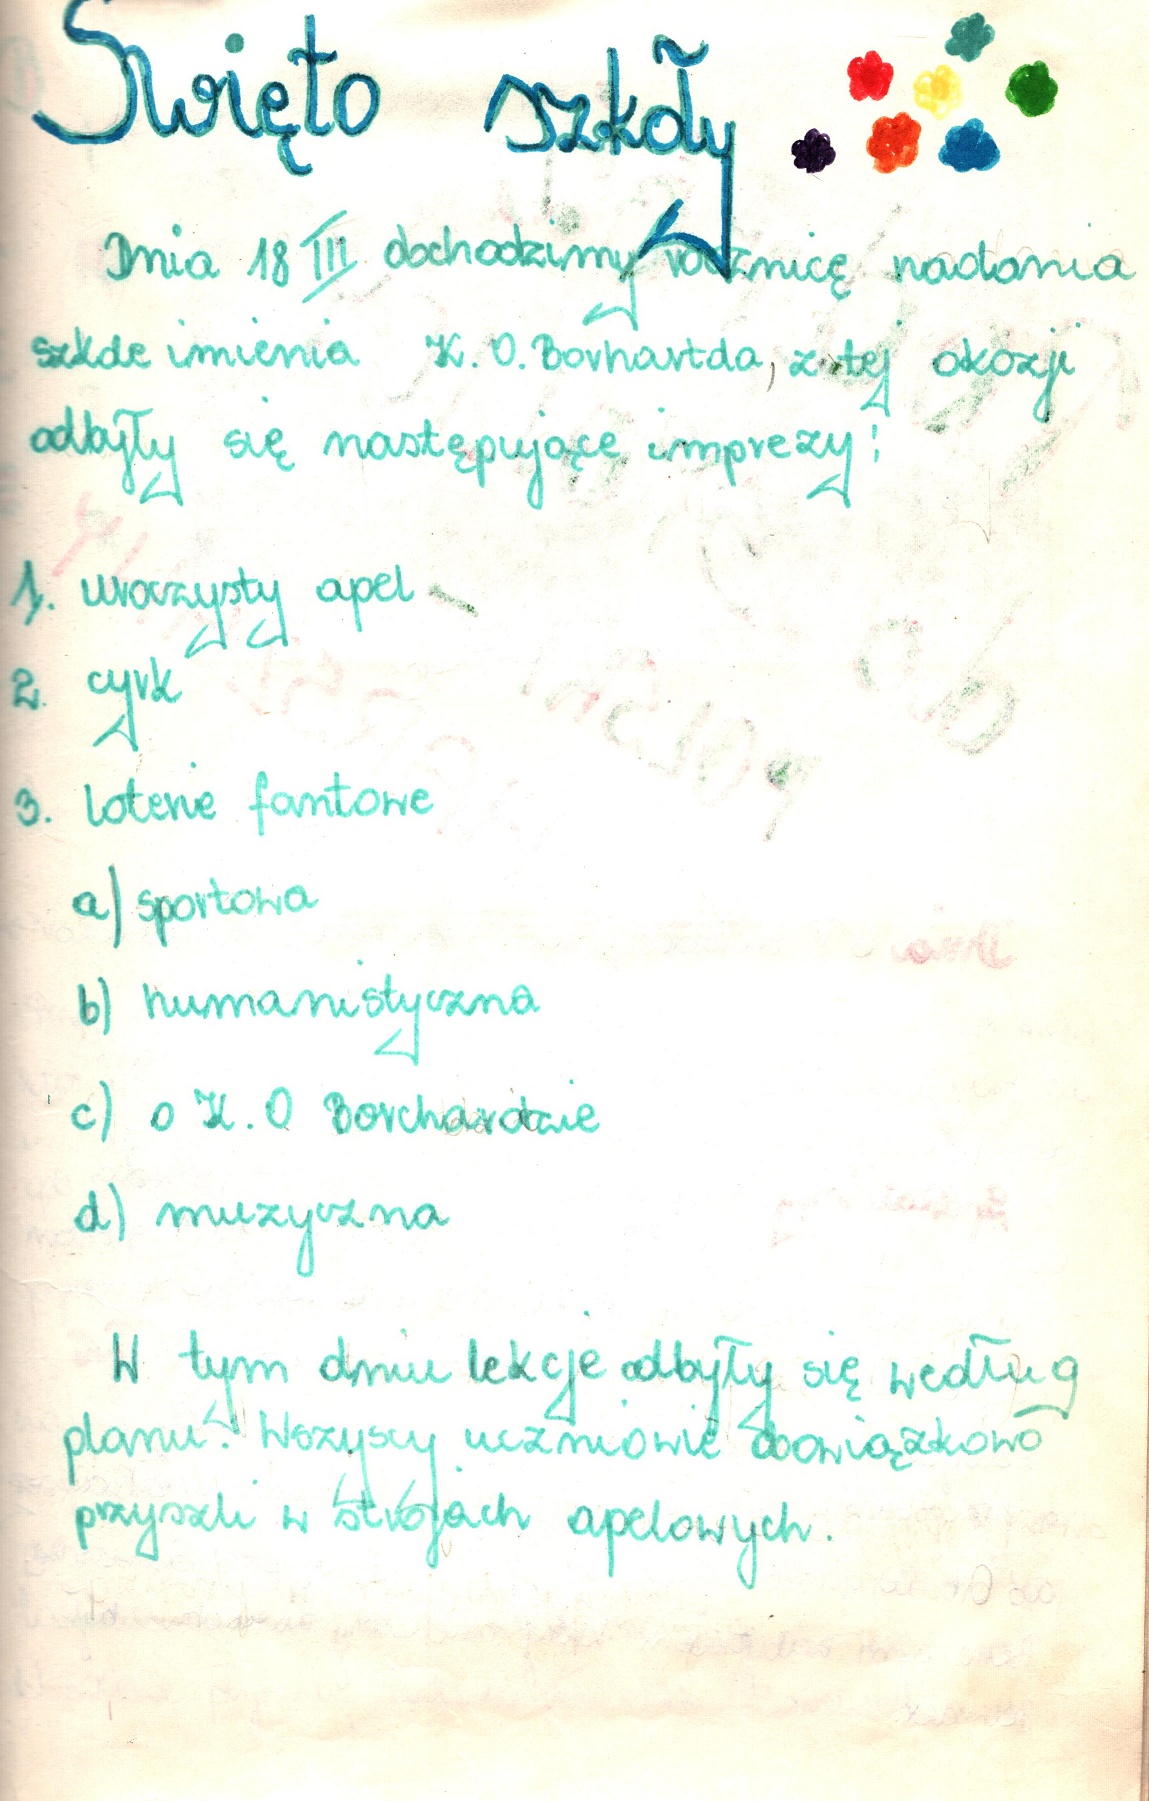 Święto szkoły
Dnia 18 III dochodzimy rocznicę nadania
szkole imienia K. O. Borhartda, z tej okazji
odbyły się następujące imprezy:
1. uroczysty apel
2. cyrk
3. loterie fantowe
a) sportowa
b) humanistyczna
c) o K. O Borchardzie
d) muzyczna
W tym dniu lekcje odbyły się według
planu. Wszyscy uczniowie obowiązkowo
przyszli w strojach apelowych.